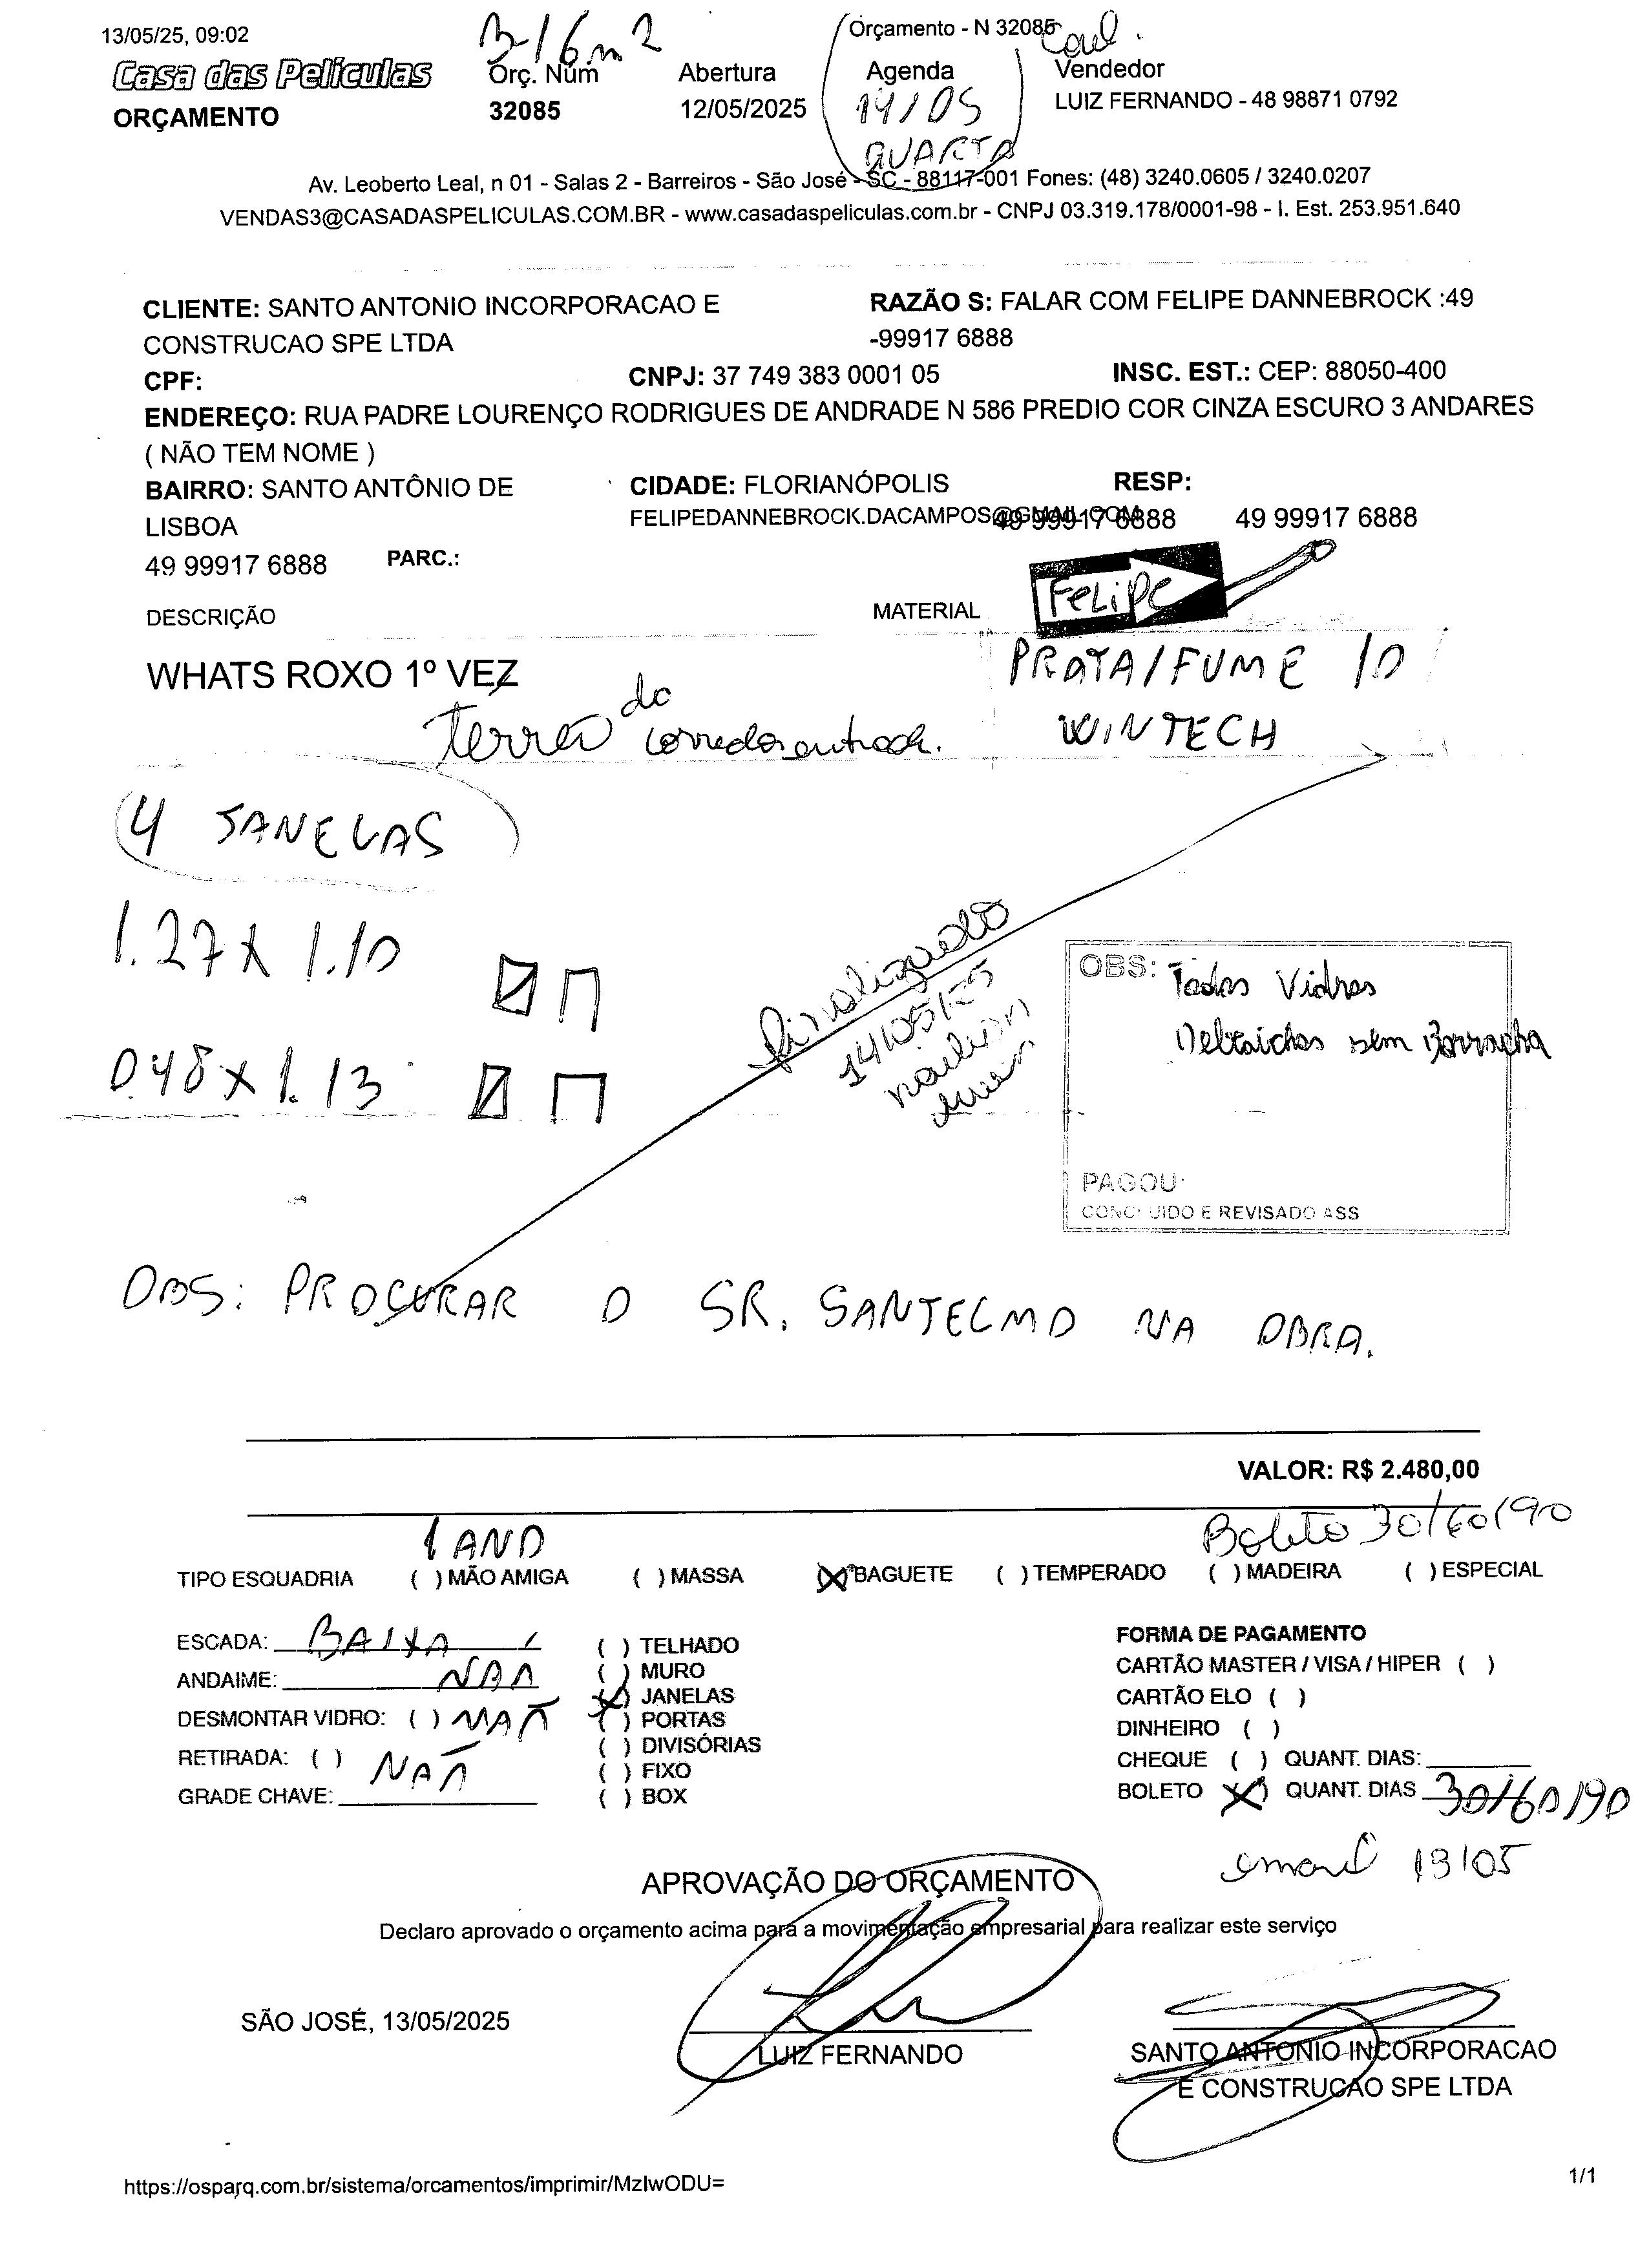 13/05/25, 09:02
Orçamento - N 32085
Casa das Películas
ORÇAMENTO
Orç. Núm
32085
Abertura
12/05/2025
Agenda
14/05
QUARTA
Vendedor
LUIZ FERNANDO - 48 98871 0792
Av. Leoberto Leal, n 01 - Salas 2 - Barreiros - São José - SC - 88117-001 Fones: (48) 3240.0605 / 3240.0207
VENDAS3@CASADASPELICULAS.COM.BR - www.casadaspeliculas.com.br - CNPJ 03.319.178/0001-98 - I. Est. 253.951.640
CLIENTE: SANTO ANTONIO INCORPORACAO E
CONSTRUCAO SPE LTDA
RAZÃO S: FALAR COM FELIPE DANNEBROCK :49
-99917 6888
CPF:
CNPJ: 37 749 383 0001 05
INSC. EST.: CEP: 88050-400
ENDEREÇO: RUA PADRE LOURENÇO RODRIGUES DE ANDRADE N 586 PREDIO COR CINZA ESCURO 3 ANDARES
( NÃO TEM NOME )
BAIRRO: SANTO ANTÔNIO DE
LISBOA
CIDADE: FLORIANÓPOLIS
RESP:
FELIPEDANNEBROCK.DACAMPOS@GMAIL.COM
49 99917 6888
49 99917 6888
49 99917 6888
PARC.:
FELIPE
DESCRIÇÃO
MATERIAL
WHATS ROXO 1º VEZ
PRATA/FUME 10
WINTECH
4 JANELAS
1.27 X 1.10
0.48 X 1.13
finalizado
14/05/25
OBS: Todos Vidros
sem Borracha
PAGOU:
CONCLUIDO E REVISADO ASS
OBS: PROCURAR O SR. SANTELMO NA OBRA.
VALOR: R$ 2.480,00
Boleto 30/60/90
1 AND
TIPO ESQUADRIA ( ) MÃO AMIGA ( ) MASSA (X) BAGUETE ( ) TEMPERADO ( ) MADEIRA ( ) ESPECIAL
ESCADA: BAIXA
ANDAIME: NÃO
DESMONTAR VIDRO: ( ) NÃO
RETIRADA: ( ) NÃO
GRADE CHAVE:
( ) TELHADO
( ) MURO
(X) JANELAS
( ) PORTAS
( ) DIVISÓRIAS
( ) FIXO
( ) BOX
FORMA DE PAGAMENTO
CARTÃO MASTER / VISA / HIPER ( )
CARTÃO ELO ( )
DINHEIRO ( )
CHEQUE ( ) QUANT. DIAS:
BOLETO (X) QUANT. DIAS 30/60/90
email 13/05
APROVAÇÃO DO ORÇAMENTO
Declaro aprovado o orçamento acima para a movimentação empresarial para realizar este serviço
SÃO JOSÉ, 13/05/2025
LUIZ FERNANDO
SANTO ANTONIO INCORPORACAO
E CONSTRUCAO SPE LTDA
https://osparq.com.br/sistema/orcamentos/imprimir/MzIwODU=
1/1